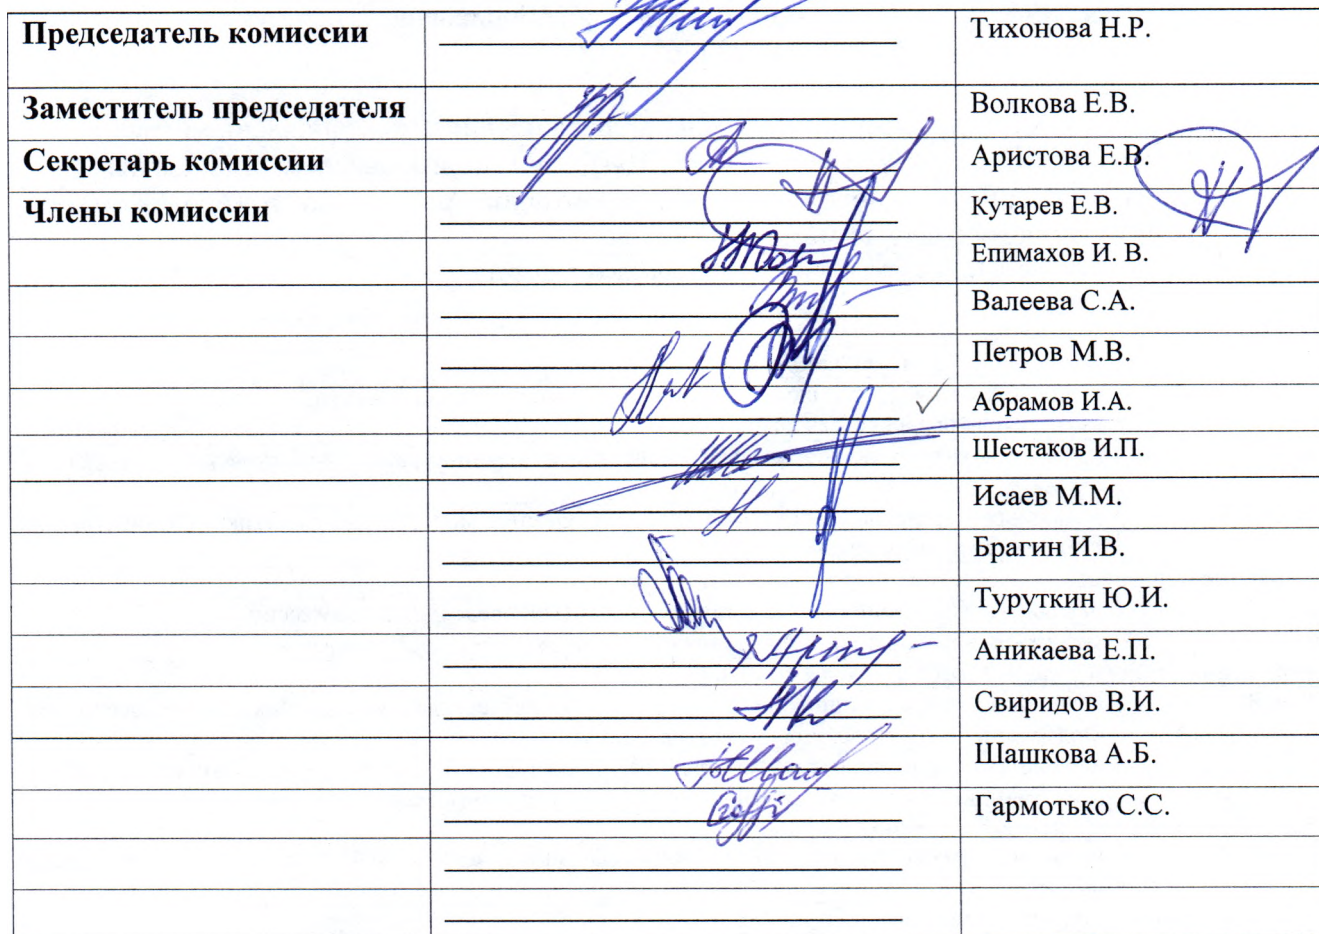 Председатель комиссии Тихонова Н.Р.
Заместитель председателя Волкова Е.В.
Секретарь комиссии Аристова Е.В.
Члены комиссии Кутарев Е.В.
Епимахов И. В.
Валеева С.А.
Петров М.В.
Абрамов И.А.
Шестаков И.П.
Исаев М.М.
Брагин И.В.
Туруткин Ю.И.
Аникаева Е.П.
Свиридов В.И.
Шашкова А.Б.
Гармотько С.С.